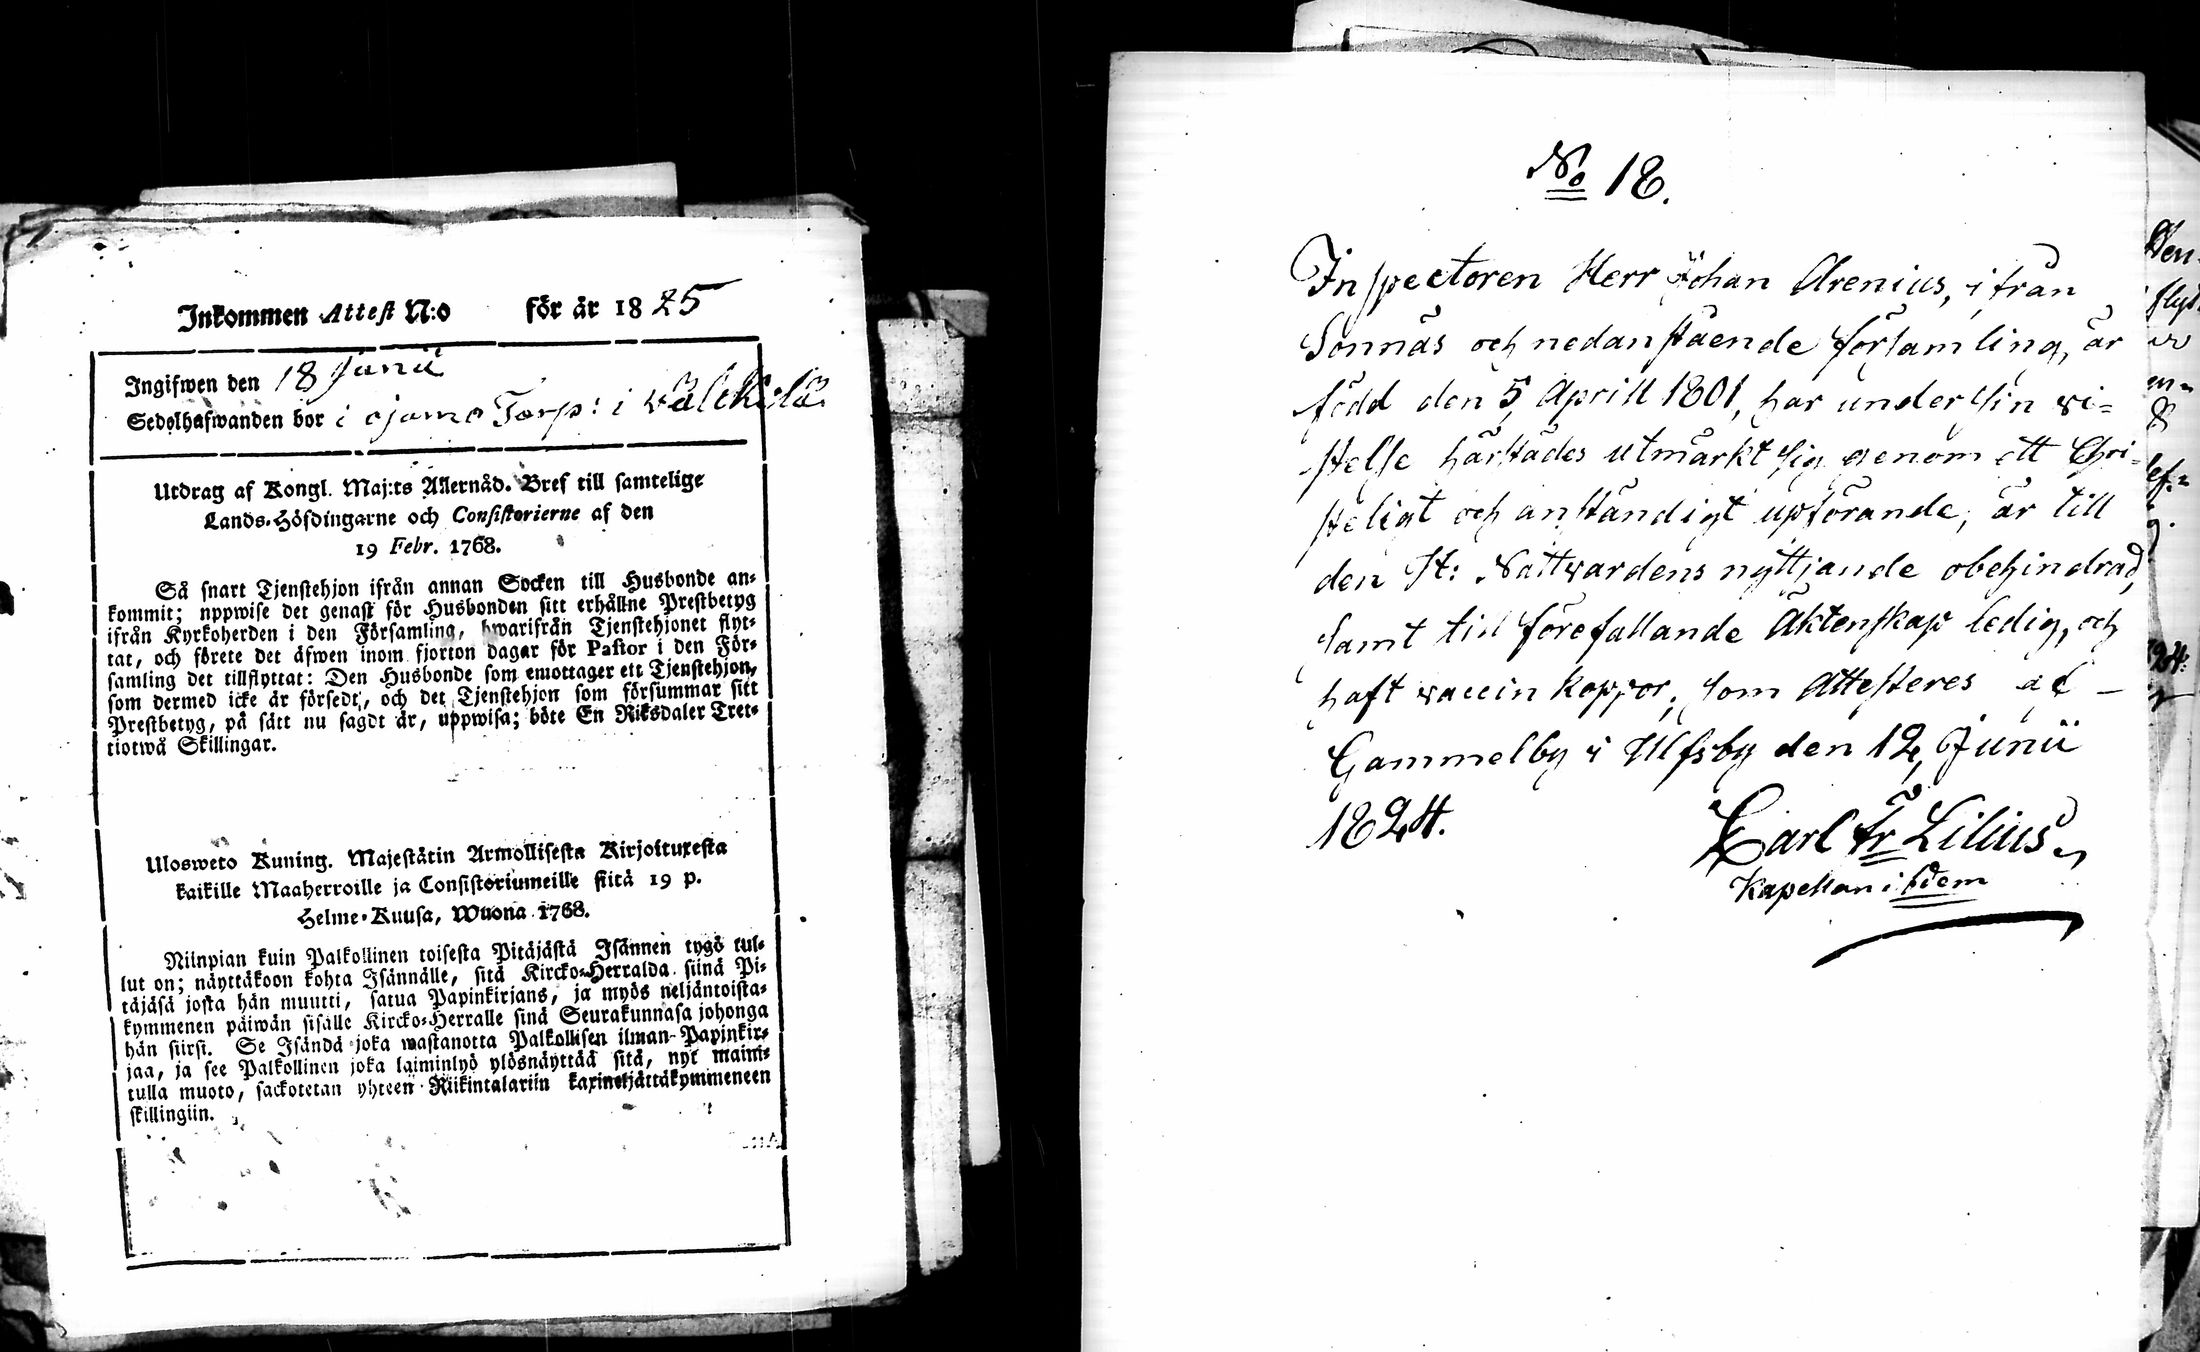 Inkommen Attest N:o för år 1825
Ingifwen den 18 Junii
Sedelhafwanden bor i ojama Torp: i välckilä
Utdrag af Kongl. Maj:ts Allernåd. Bref till samtelige
Lands-Höfdingarne och Consistorierne af den
19 Febr. 1768.
Så snart Tjenstehjon ifrån annan Socken till Husbonde an-
kommit; uppwise det genast för Husbonden sitt erhållne Prestbetyg
ifrån Kyrkoherden i den Församling, hwarifrån Tjenstehjonet flyt-
tat, och förete det äfwen inom fjorton dagar för Pastor i den För-
samling det tillflyttat: Den Husbonde som emottager ett Tjenstehjon,
som dermed icke är försedt, och det Tjenstehjon som försummar sitt
Prestbetyg, på sätt nu sagdt är, uppwisa; böte En Riksdaler Tret-
tiotwå Skillingar.
Ulosweto Kuning. Majestätin Armollisesta Kirjoituxesta
kaikille Maaherroille ja Consistoriumeille siitä 19 p.
Helme-Kuusa, Wuona 1768.
Niinpian kuin Palkollinen toisesta Pitäjästä Isännen tygö tul-
lut on; näyttäkoon kohta Isännälle, sitä Kircko-Herralda siinä Pi-
täjäsä josta hän muutti, satua Papinkirjans, ja myös neljäntoista-
kymmenen päiwän sisälle Kircko-Herralle sinä Seurakunnasa johonga
hän siirsi. Se Isändä joka wastanotta Palkollisen ilman Papinkir-
jaa, ja see Palkollinen joka laiminlyö ylösnäyttää sitä, nyt maini-
tulla muoto, sackotetan yhteen Riikintalariin kaxineljättäkymmeneen
skillingiin.
No 18.
Inspectoren Herr Johan Arenius, ifrån
Sonnäs och nedanstående församling, är
född den 5 Aprill 1801, har under sin vi=
stelse härstädes utmärkt sig genom ett Chri=
steligt och anständigt upförande, är till
den H: Nattvardens nyttjande obehindrad,
samt till förefallande Äktenskap ledig, och
haft vaccin koppor, som Attesteras af –
Gammelby i Ulfsby den 12 Junii
1824.
Carl Fr Lilius
Kapellan i bidem